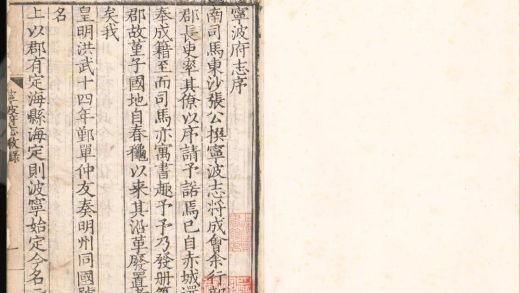 寧波府志序
南司馬東沙張公撰寧波志將成會余行部
郡長吏率其僚以序請予諾焉已自赤城還
奉成籍至而司馬亦寓書趣予予乃發册
郡故菫子國地自春龝以來其沿革廢置
矣我
皇明洪武十四年鄞單仲友奏明州同國號
名
上以郡有定海縣海定則波寧始定今名